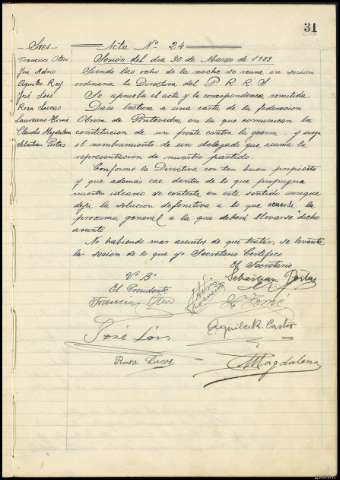 31
Sres Acta Nº 24
Francisco Otero Sesión del dia 30 de Marzo de 1933
Siendo las ocho de la noche se reune en sesion
Aquilio R. ordinaria la Directiva del P. R. R. S.
José Luis Se aprueba el acta y la correspondencia remitida.
Rosa Dase lectura a una carta de la federacion
Laureano Obrera de Pontevedra en la que comunican la
Claudio Magdalena constitucion de un frente contra la guerra y ruega
Sebastian el nombramiento de un delegado que asuma la
representacion de nuestro partido.
Conforme la Directiva con tan buen proposito
y que ademas cae dentro de lo que propugna
nuestro ideario se contesta en este sentido aunque
deja la solucion definitiva a lo que acuerde la
proxima general a la que deberá llevarse dicho
asunto
No habiendo mas asuntos de que tratar, se levanta
la sesion de lo que yo Secretario Certifico
El Secretario
Vº Bº Sebastian
El Presidente
Francisco Otero
José Luis Aquilio R. Castro
Rosa
C. Magdalena